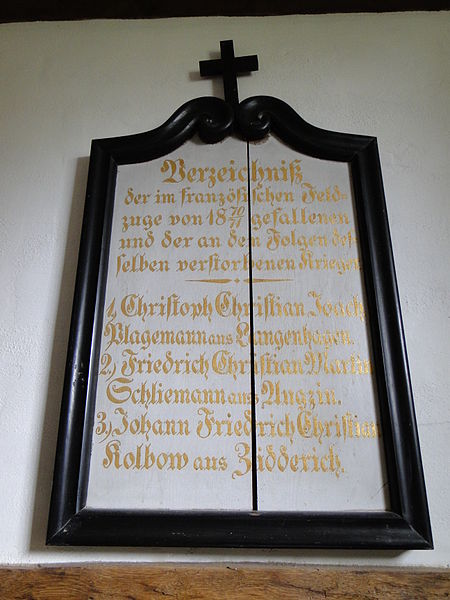 Verzeichniß
der im französischen Feld=
zuge von 18 70/71 gefallenen
und der an dem Folgen des=
selben verstorbenen Krieger
1, Christoph Christian Joach.
Plagemann aus Langenhagen.
2,) Friedrich Christian Martin
Schliemann aus Augzin.
3,) Johann Friedrich Christian
Kolbow aus Zidderich.